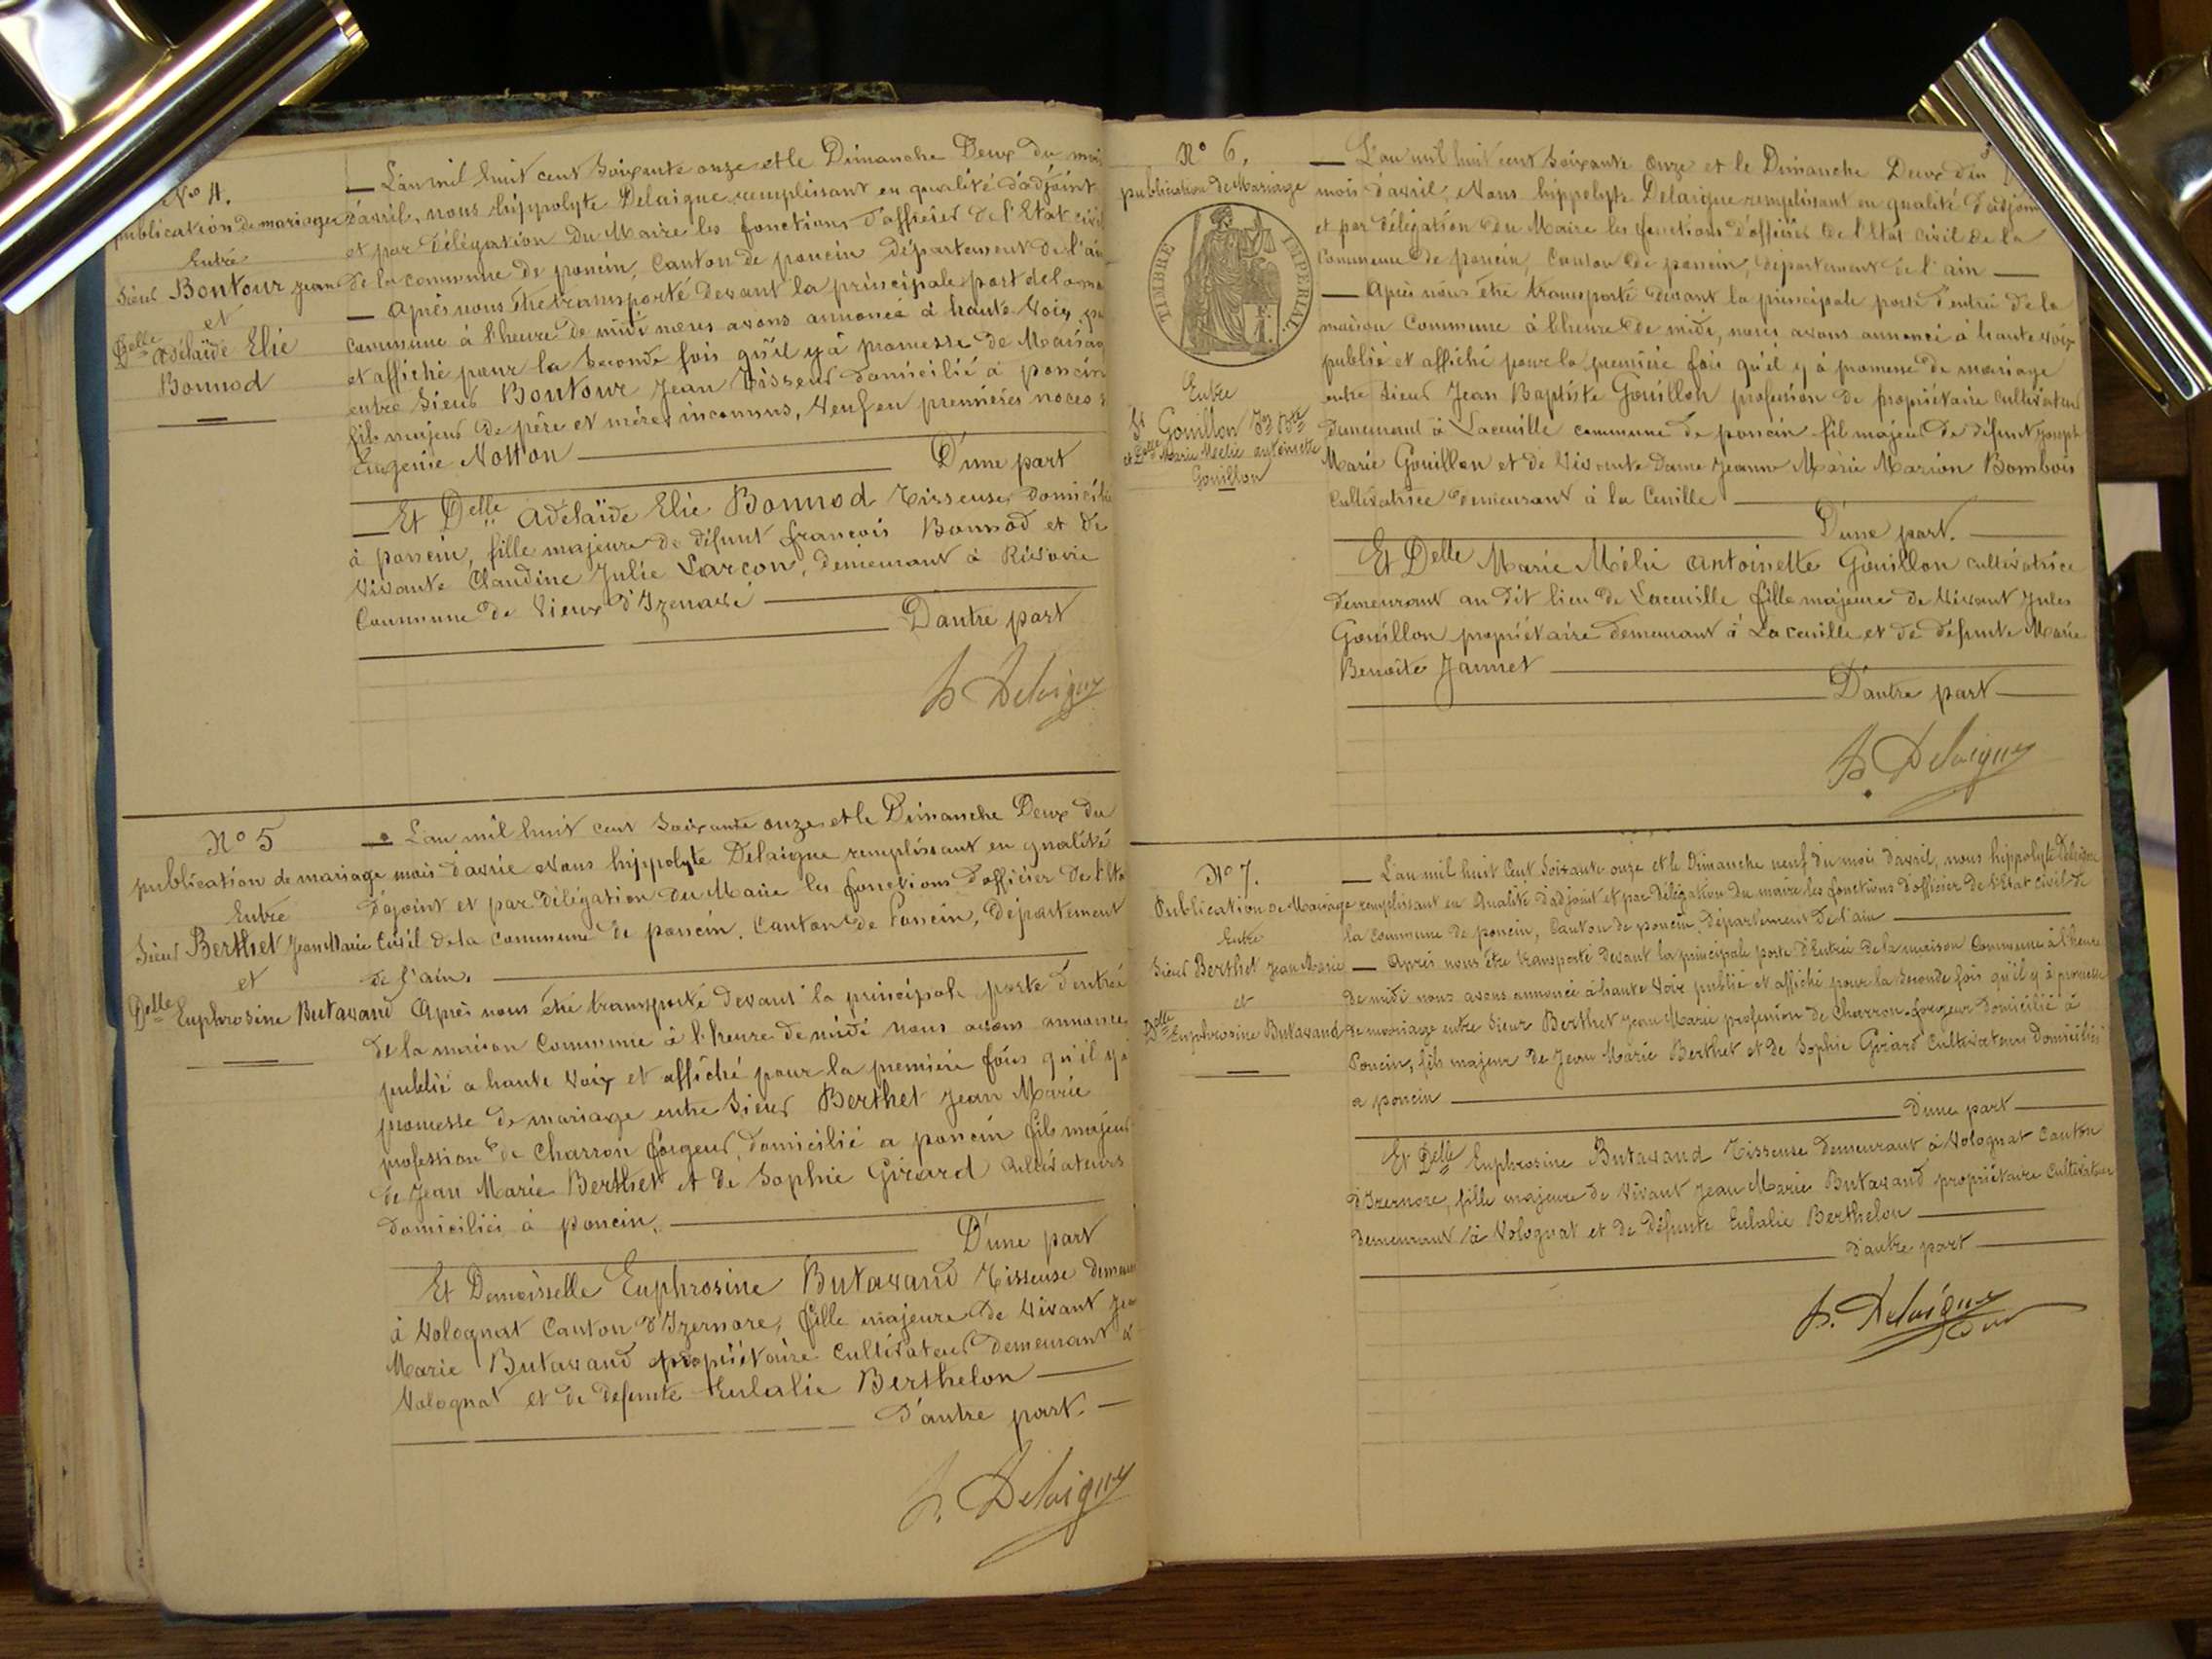 N° 4.
publication de mariage
Entre
Sieur Bontour Jean
et
Delle Adélaïde Elie
Bonnod
L'an mil huit cent soixante onze et le Dimanche Deux du mois
d'avril, nous hippolyte Delaigue remplissant en qualité d'adjoint
et par délégation du Maire les fonctions d'officier de l'Etat civil
de la commune de poncin, Canton de poncin département de l'ain
Après nous être transporté devant la principale port de la
commune à l'heure de midi nous avons annoncé à haute voix
et affiché pour la seconde fois qu'il y à promesse de Mariage
entre sieur Bontour Jean tisseur domicilié à poncin
fils majeur de père et mère inconnus, Veuf en premières noces
Eugénie Notton
D'une part
Et Delle Adélaïde Elie Bonnod Tisseuse domicilié
à poncin, fille majeure de défunt françois Bonnod et de
vivante Claudine Julie Larcon, demeurant à
Commune de Vieux d'Izenave
D'autre part
h Delaigue
N° 5
publication de mariage
Entre
Sieur Berthet Jean Marie
et
Delle Euphrosine Butavand
L'an mil huit cent soixante onze et le Dimanche Deux du
mois d'avril Nous hippolyte Delaigue remplissant en qualité
d'ajoint et par délégation du Maire les fonctions d'officier de l'Etat
Civil de la commune de poncin, Canton de Poncin, département
de l'ain.
Après nous être transporté devant la principale porte d'entrée
de la maison Commune à l'heure de midi nous avons annoncé
publié a haute voix et affiché pour la première fois qu'il y à
promesse de mariage entre sieur Berthet Jean Marie
profession de Charron forgeur, domicilié a poncin fils majeur
de Jean Marie Berthet et de Sophie Girard cultivateurs
domiciliés à poncin.
D'une part
Et Demoisselle Euphrosine Butavand Tisseuse
à Volognat Canton d'Izernore, fille majeure de Vivant Jean
Marie Butavand propriétaire Cultivateur demeurant à
Volognat et de defunte Eulalie Berthelon
d'autre part.
h. Delaigue
N° 6.
publication de Mariage
TIMBRE IMPERIAL.
Entre
Sr Gouillon Jn Bte
et Delle Marie Mélie antoinette
Gouillon
L'an mil huit cent soixante onze et le Dimanche Deux du
mois d'avril, Nous hippolyte Delaigue remplissant en qualité d'adjoint
et par délégation du Maire les fonctions d'officier de l'Etat civil de la
Commune de poncin, Canton de poncin, département de l'ain
Après nous être transporté devant la principale porte d'entrée de la
maison Commune à l'heure de midi, nous avons annoncé à haute voix
publié et affiché pour la première fois qu'il y à promesse de mariage
entre sieur Jean Baptiste Gouillon profession de propriétaire cultivateur
demeurant à Lacueille commune de poncin fils majeur de défunt Joseph
Marie Gouillon et de vivante Dame Jeanne Marie Marion Bombois
Cultivatrice demeurant à la Cueille
D'une part.
Et Delle Marie Mélie Antoinette Gouillon cultivatrice
demeurant au dit lieu de Lacueille fille majeure de Vivant Jules
Gouillon propriétaire demeurant à Lacueille et de défunte Marie
Benoîte Jannet
D'autre part
h. Delaigue
N° 7.
Publication de Mariage
Entre
Sieur Berthet Jean Marie
et
Delle Euphrosine Butavand
L'an mil huit Cent soixante onze et le Dimanche neuf du mois d'avril, nous hippolyte Delaigue
remplissant en Qualité d'adjoint et par délégation du maire les fonctions d'officier de l'Etat civil de
la Commune de poncin, Canton de poncin, Département de l'ain
Après nous être transporté devant la principale porte d'Entrée de la maison Commune à l'heure
de midi nous avons annoncé à haute Voix publié et affiché pour la seconde fois qu'il y à promesse
de mariage entre Sieur Berthet Jean Marie profession de Charron forgeur domicilié à
Poncin, fils majeur de Jean Marie Berthet et de Sophie Girard Cultivateurs domiciliés
a poncin
d'une part
Et Delle Euphrosine Butavand Tisseuse demeurant à Volognat Canton
d'Izernore, fille majeure de Vivant Jean Marie Butavand propriétaire Cultivateur
demeurant à Volognat et de défunte Eulalie Berthelon
d'autre part
h. Delaigue